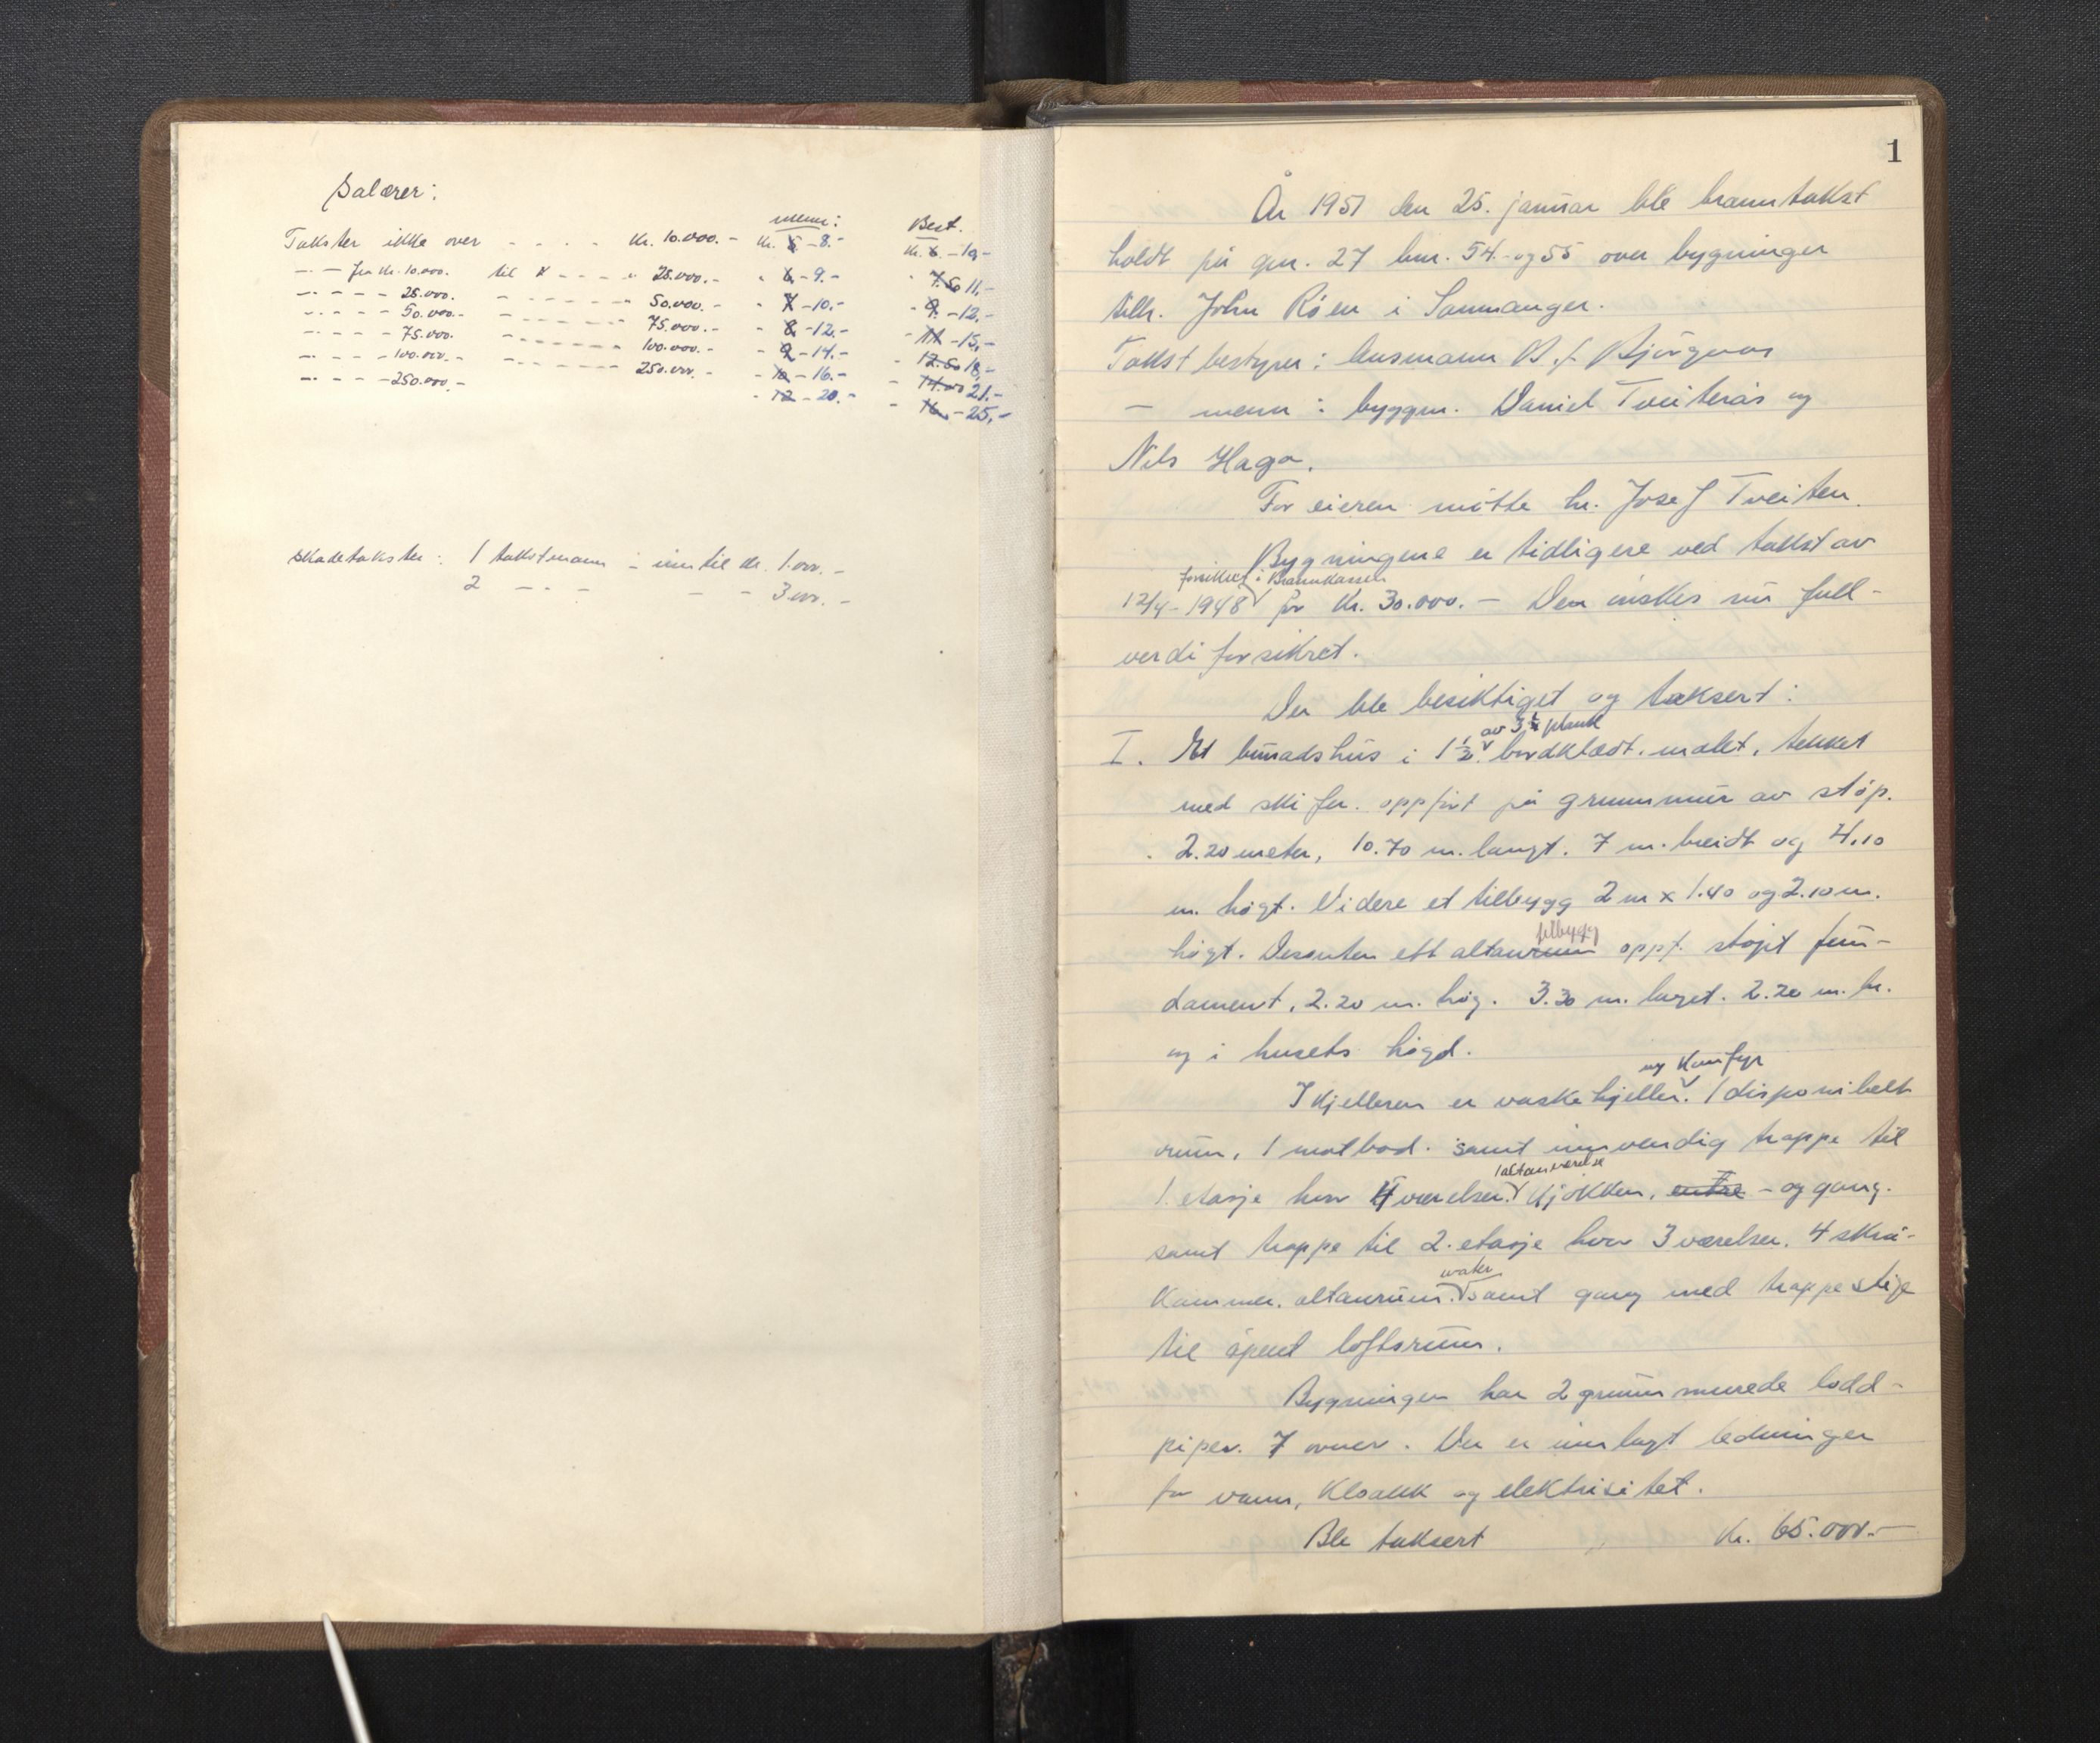 Salærer:
menn: Best.
Takster ikke over - - - - Kr. 10.000.- Kr. 5 - 8.- Kr. 6. - 10.-
- - fra Kr. 10.000. til " - - - " 25.000.- " 6 - 9.- " 7.50 11.-
- - - - 25.000. - - - - - - - 50.000.- " 7 - 10.- " 9. - 12.-
- - - - 50.000.- - - - - - - - 75.000.- " 8 - 12.- - 11 - 15.-
- - - - 75.000. - - - - - - - 100.000.- - 9 - 14.- - 12.50 18.-
- - - - 100.000.- - - - - - - - 250.000.- - 10 - 16.- - 14.00 21.-
- - - - 250.000.- - 12 - 20.- - 16. - 25.-
Skadetakster: 1 takstmann - inntil kr. 1.000.-
2 - - - - - 3000.-
1
År 1951 den 25. januar ble branntakst
holdt på gnr. 27 bnr. 54.- og 55 over bygninger
tilh. John Röen i Samnanger.
Takstbestyrer: lensmann B. J. Bjørgaas
- menn: byggm. Daniel Tveiterås og
Nils Haga.
For eieren møtte hr. Josef Tveiten.
Bygningene er tidligere ved takst av
forsikret i Brannkassen
12/4-1948 for Kr. 30.000.- Den önskes nu full-
verdi forsikret.
Der ble besiktiget og taksert:
av 3" plank
I. Et bunadshus i 1 1/2. bordklædt. malet, tekket
med skifer. oppfört på grunnmur av støp.
2.20 meter, 10.70 m. langt. 7 m. breidt og 4,10
m. högt. Videre et tilbygg 2 m x 1.40 og 2.10 m.
tilbygg
högt. Desuten ett altanrum oppf. støpt fun-
dament, 2.20 m. hög. 3.30 m. langt. 2.20 m. br.
og i husets högd.
og Komfyr
I kjelleren er vaskekjeller. 1 disponibelt
rum, 1 matbod. samt innvendig trappe til
1 altanværelse
1. etasje hvor 4 værelser. Kjøkken, entre - og gang.
samt trappe til 2. etasje hvor 3 værelser. 4 skrå-
vater
kammer. altanrum. samt gang med trappestige
til åpent loftsrum.
Bygningen har 2 grunnmurede lodd-
piper. 7 ovner. Der er innlagt ledninger
for vann, Kloakk og elektrisitet.
Ble taksert Kr. 65.000.-